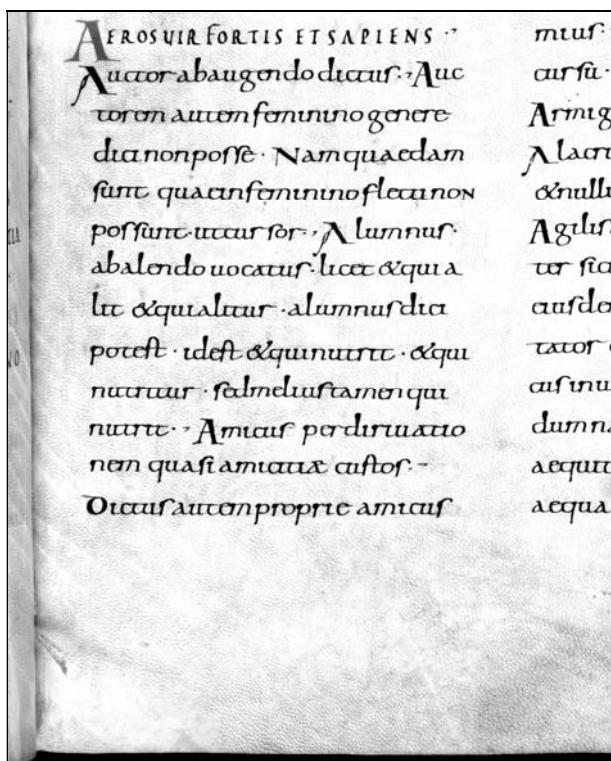 AEROS VIR FORTIS ET SAPIENS
Auctor ab augendo dictus. Auc
torem autem feminino genere
dici non posse. Nam quaedam
sunt quae in feminino flecti non
possunt. ut cursor. Alumnus.
ab alendo uocatus. licet & qui a
lit & qui alitur. alumnus dici
potest. id est & qui nutrit. & qui
nutritur. sed melius tamen qui
nutrit. Amicus per diriuatio
nem quasi amicitiæ custos.
Dictus autem proprie amicus
mius
cursu.
Armig
Alacri
& nulli
Agilis
ter sic
eiusde
tator
cus inu
dumna
aequit
aequa